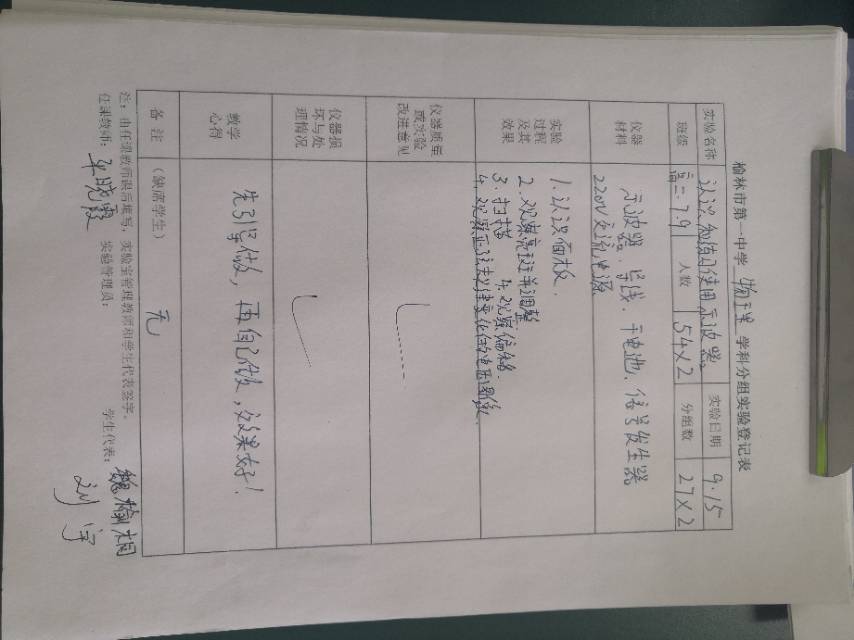 榆林市第一中学 物理 学科分组实验登记表
实验名称 认识和练习使用示波器 实验日期 9.15
班级 高二.7.9 人数 54×2 分组数 27×2
仪器材料 示波器、导线、干电池、信号发生器
220V交流电源
实验过程及其效果
1.认识面板.
2.观察亮斑并调整
3.扫描 4.观察偏移.
4.观察正弦规律变化的电压图像.
仪器质量或实验改进意见
仪器损坏与处理情况
教学心得 先引导做,再自己做,效果好!
备注 (缺席学生) 无
注:由任课教师课后填写,实验室管理教师和学生代表签字。
任课教师: 晓霞 实验管理员: 学生代表: 魏榆
刘宇